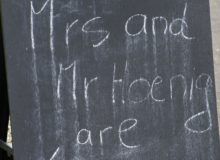 Mrs and
Mr Hoenig
are